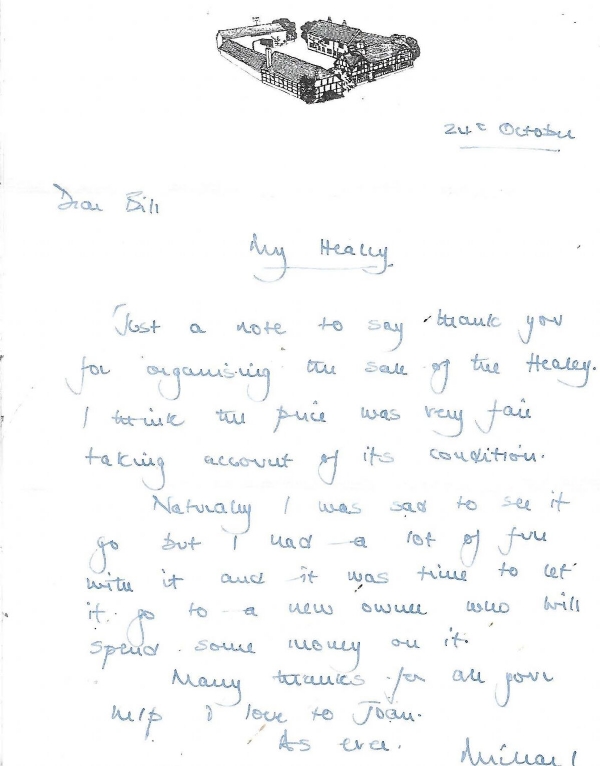 24th October
Dear Bill
My Healey
Just a note to say thank you
for 'organising' the sale of the Healey.
I think the price was very fair
taking account of its condition.
Naturally I was sad to see it
go but I had a lot of fun
with it and it was time to let
it go to a new owner who will
spend some money on it.
Many thanks for all your
help & love to Joan.
As ever.
Michael